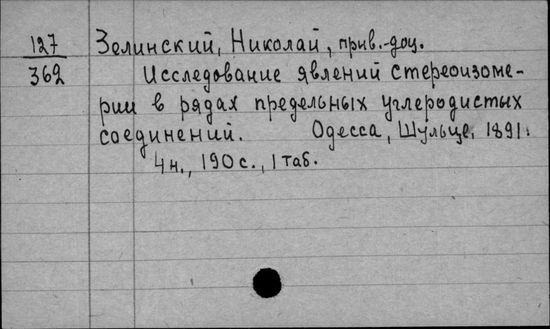 127 Зелинский, Николай, прив.-доц.
362 Исследование явлений стереоизоме-
рии в рядах предельных углеродистых
соединений. Одесса, Шульце, 1891.
4 н., 190 с., 1 таб.